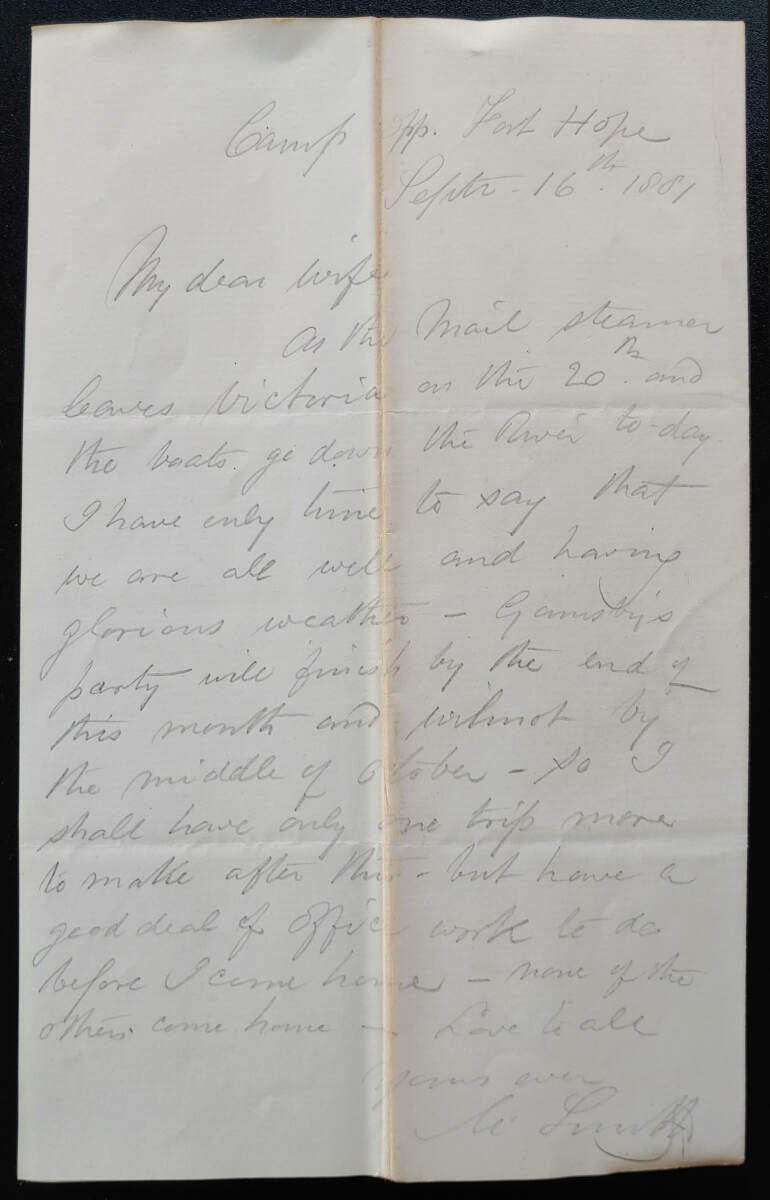 Camp opp. Fort Hope
Septr - 16th. 1881
My dear wife
As the Mail steamer
leaves Victoria on the 20th. and
the boats go down the River to-day
I have only time to say that
we are all well and having
glorious weather - Gamsby's
party will finish by the end of
this month and Wilmot by
the middle of October - so I
shall have only one trip more
to make after this - but have a
good deal of office work to do
before I come home - none of the
others come home - Love to all
Yours ever
Smith